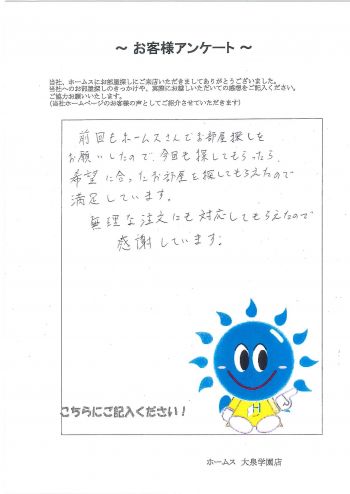 ～ お客様アンケート ～
当社、ホームスにお部屋探しにご来店いただきましてありがとうございました。
当社へのお部屋探しのきっかけや、実際にお越しいただいての感想をご記入ください。
ご協力お願いいたします。
(当社ホームページのお客様の声としてご紹介させていただきます)
前回もホームスさんでお部屋探しを
お願いしたので、今回も探してもらったら、
希望に合ったお部屋を探してもらえたので
満足しています。
無理な注文にも対応してもらえたので
感謝しています。
H
こちらにご記入ください！
ホームス 大泉学園店